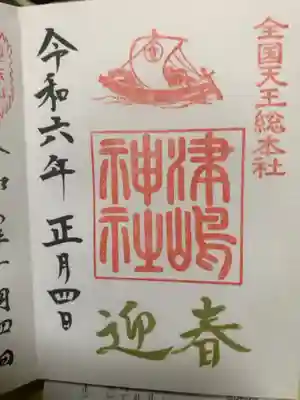 全国天王総本社
津嶋
神社
迎春
令和六年 正月四日